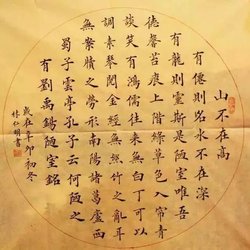 山不在高
有僊則名水不在深
有龍則靈斯是陋室唯吾
德馨苔痕上階緑草色入帘青
談笑有鴻儒往來無白丁可以
調素琴閱金經無絲竹之亂耳
無案牘之勞形南陽諸葛廬西
蜀子雲亭孔子云何陋之
有劉禹錫陋室銘
歲在辛卯初冬
仁明書